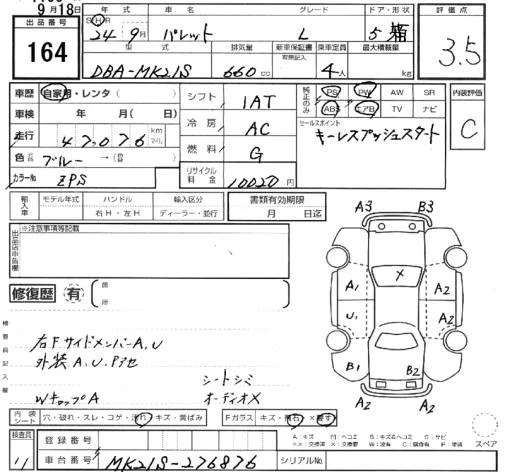 9月18日
出品番号
164
年式 車名 グレード ドア・形状
SH 24年 9月 パレット L 5 箱
型式 排気量 新車保証書 乗車定員 最大積載量
有無記入
DBA-MK21S 660cc 4人 kg
評価点
3.5
車歴 自家用・レンタ( )
車検 年 月( 日)
走行 47076 km マイル
色 ブルー →(
カラーNo ZPS
シフト 1AT
冷房 AC
燃料 G
リサイクル料金 10020円
純正のみ
PS PW AW SR
AB エアB TV ナビ
セールスポイント
キーレスプッシュスタート
内装評価
C
輸入車
モデル年式 ハンドル 輸入区分
右H・左H ディーラー・並行
書類有効期限
月 日迄
出品店申告欄
※注意事項等記載
修復歴 有 箇所
検査員記入欄
右FサイドメンバーA,U
外装A.U.Pアセ
シートシミ
WキップA
オーディオX
A3 B3
X
A1 A2
U1
A2
B1 B2
A2 A2
内装シート
穴・破れ・スレ・コゲ・汚れ キズ・黄ばみ
Fガラス
スペア
検査員
11
登録番号
車台番号 MK21S-276876
シリアルNo.